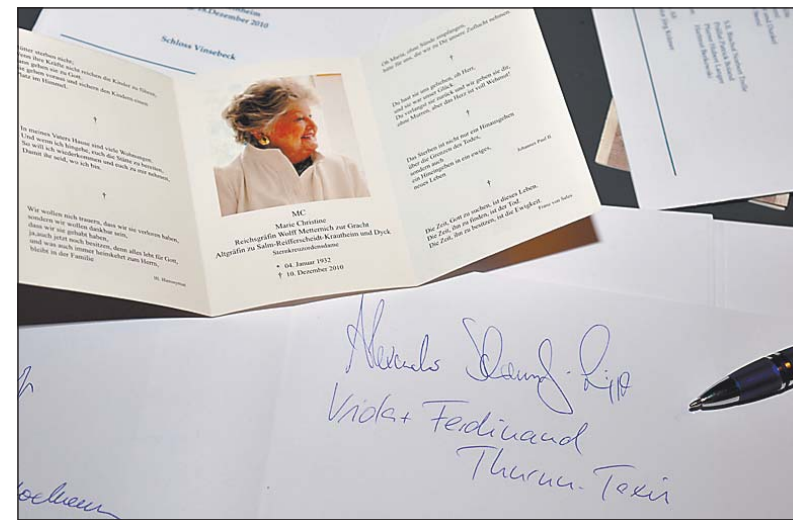 18.Dezember 2010
Schloss Vinsebeck
Mütter sterben nicht,
Wenn ihre Kräfte nicht reichen die Kinder zu führen,
dann gehen sie zu Gott.
Sie gehen voraus und sichern den Kindern einen
Platz im Himmel.
†
In meines Vaters Hause sind viele Wohnungen.
Und wenn ich hingehe, euch die Stätte zu bereiten,
So will ich wiederkommen und euch zu mir nehmen,
Damit ihr seid, wo ich bin.
†
Wir wollen nicht trauern, dass wir sie verloren haben,
sondern wir wollen dankbar sein,
dass wir sie gehabt haben,
ja,auch jetzt noch besitzen, denn alles lebt für Gott,
und was auch immer heimkehrt zum Herrn,
bleibt in der Familie
Hl. Hieronymus
MC
Marie Christine
Reichsgräfin Wolff Metternich zur Gracht
Altgräfin zu Salm-Reifferscheidt-Krautheim und Dyck
Sternkreuzordensdame
* 04. Januar 1932
† 10. Dezember 2010
Oh Maria, ohne Sünde empfangen,
bitte für uns, die wir zu Dir unsere Zuflucht nehmen.
†
Du hast sie uns geliehen, oh Herr,
und sie war unser Glück.
Du verlangst sie zurück und wir geben sie dir,
ohne Murren, aber das Herz ist voll Wehmut!
†
Das Sterben ist nicht nur ein Hinausgehen
über die Grenzen des Todes,
sondern auch
ein Hineingehen in ein ewiges,
neues Leben
Johannes Paul II.
†
Die Zeit, Gott zu suchen, ist dieses Leben.
Die Zeit, ihn zu finden, ist der Tod.
Die Zeit, ihn zu besitzen, ist die Ewigkeit.
Franz von Sales
Alexander Schaumb.-Lippe
Vrida+ Ferdinand
Thurn-Taxis